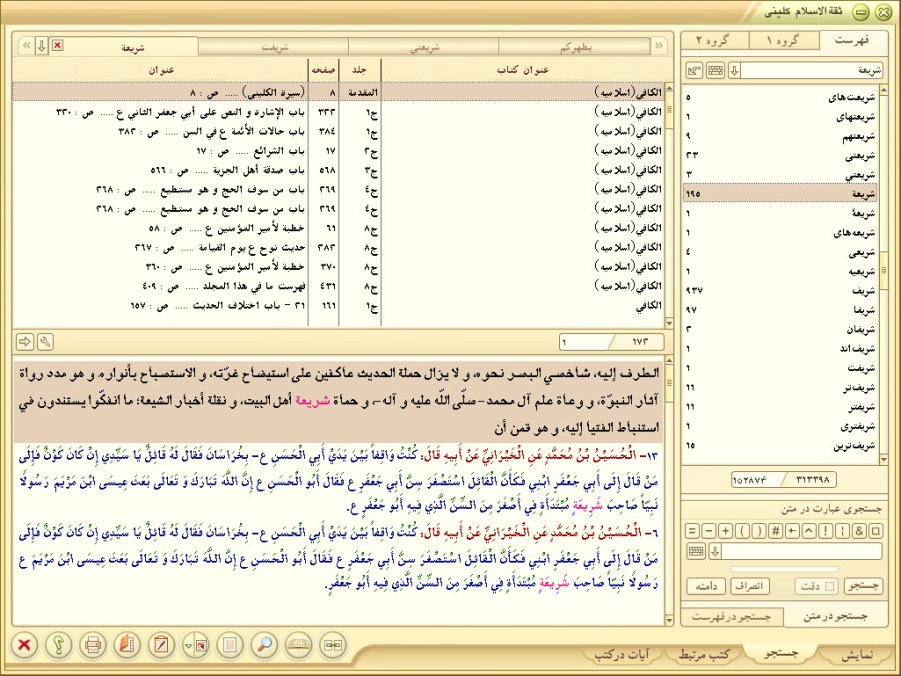 ثقة الاسلام کلینی
فهرست
گروه ۱
گروه ۲
شریعة
شریعت‌های ۵
شریعتهای ۱
شریعتهم ۹
شریعتی ۲۳
شریعتي ۳
شریعة ۱۹۵
شریعۀ ۱
شریعه‌های ۱
شریعی ٤
شریعیه ۱
شریف ۹۳۷
شریفا ۹۷
شریفان ۳
شریف‌اند ۱
شریفت ۱
شریف‌تر ۱۱
شریفتر ۱۱
شریفتری ۱
شریف‌ترین ۱۵
۱۵۲۸۷۴ / ۳۱۳۳۹۸
جستجوی عبارت در متن
= − + ( ) # ← ^ ! ¦ &
جستجو
دقت
انصراف
دامنه
جستجو در متن
جستجو در فهرست
» یظهرکم شریعتي شریفت شریعة «
عنوان کتاب جلد صفحه عنوان
الکافي(اسلامیه) المقدمة ۸ (سیرة الکلیني) ..... ص : ۸
الکافي(اسلامیه) ج۱ ۳۲۲ باب الإشارة و النص على أبي جعفر الثاني ع ..... ص : ۳۲۰
الکافي(اسلامیه) ج۱ ۳۸٤ باب حالات الأئمة ع في السن ..... ص : ۳۸۲
الکافي(اسلامیه) ج۲ ۱۷ باب الشرائع ..... ص : ۱۷
الکافي(اسلامیه) ج۳ ۵٦۸ باب صدقة أهل الجزیة ..... ص : ۵٦٦
الکافي(اسلامیه) ج٤ ۲٦۹ باب من سوف الحج و هو مستطیع ..... ص : ۲٦۸
الکافي(اسلامیه) ج٤ ۲٦۹ باب من سوف الحج و هو مستطیع ..... ص : ۲٦۸
الکافي(اسلامیه) ج۸ ٦۱ خطبة لأمیر المؤمنین ع ..... ص : ۵۸
الکافي(اسلامیه) ج۸ ۲۸۲ حدیث نوح ع یوم القیامة ..... ص : ۲٦۷
الکافي(اسلامیه) ج۸ ۳۷۰ خطبة لأمیر المؤمنین ع ..... ص : ۳٦۰
الکافي(اسلامیه) ج۸ ٤۳۱ فهرست ما في هذا المجلد ..... ص : ٤۰۹
الکافي ج۱ ۱٦۱ ۲۱ - باب اختلاف الحدیث ..... ص : ۱۵۷
۱ / ۱۷۳
الطرف إلیه، شأخصي البصر نحوه، و لا یزال حملة الحدیث عاکفین على استیضاح غرّته، و الاستصباح بأنواره. و هو مدد رواة
آثار النبوّة، و وعاة علم آل محمد-صلّی اللّه علیه و آله-، و حماة شریعة أهل البیت، و نقلة أخبار الشیعة؛ ما انفکّوا یستندون في
استنباط الفتیا إلیه، و هو قمن أن
۱۳- الْحُسَیْنُ بْنُ مُحَمَّدٍ عَنِ الْخَیْرَانِيِّ عَنْ أَبِیهِ قَالَ: کُنْتُ وَاقِفاً بَیْنَ یَدَيْ أَبِي الْحَسَنِ ع- بِخُرَاسَانَ فَقَالَ لَهُ قَائِلٌ یَا سَیِّدِي إِنْ کَانَ کَوْنٌ فَإِلَى
مَنْ قَالَ إِلَى أَبِي جَعْفَرٍ ابْنِي فَکَأَنَّ الْقَائِلَ اسْتَصْغَرَ سِنَّ أَبِي جَعْفَرٍ ع فَقَالَ أَبُو الْحَسَنِ ع إِنَّ اللَّهَ تَبَارَكَ وَ تَعَالَى بَعَثَ عِیسَى ابْنَ مَرْیَمَ رَسُولًا
نَبِیّاً صَاحِبَ شَرِیعَةٍ مُبْتَدَأَةٍ فِي أَصْغَرَ مِنَ السِّنِّ الَّذِي فِیهِ أَبُو جَعْفَرٍ ع.
٦- الْحُسَیْنُ بْنُ مُحَمَّدٍ عَنِ الْخَیْرَانِيِّ عَنْ أَبِیهِ قَالَ: کُنْتُ وَاقِفاً بَیْنَ یَدَيْ أَبِي الْحَسَنِ ع- بِخُرَاسَانَ فَقَالَ لَهُ قَائِلٌ یَا سَیِّدِي إِنْ کَانَ کَوْنٌ فَإِلَى
مَنْ قَالَ إِلَى أَبِي جَعْفَرٍ ابْنِي فَکَأَنَّ الْقَائِلَ اسْتَصْغَرَ سِنَّ أَبِي جَعْفَرٍ ع فَقَالَ أَبُو الْحَسَنِ ع إِنَّ اللَّهَ تَبَارَكَ وَ تَعَالَى بَعَثَ عِیسَى ابْنَ مَرْیَمَ ع
رَسُولًا نَبِیّاً صَاحِبَ شَرِیعَةٍ مُبْتَدَأَةٍ فِي أَصْغَرَ مِنَ السِّنِّ الَّذِي فِیهِ أَبُو جَعْفَرٍ.
نمایش جستجو کتب مرتبط آیات در کتب